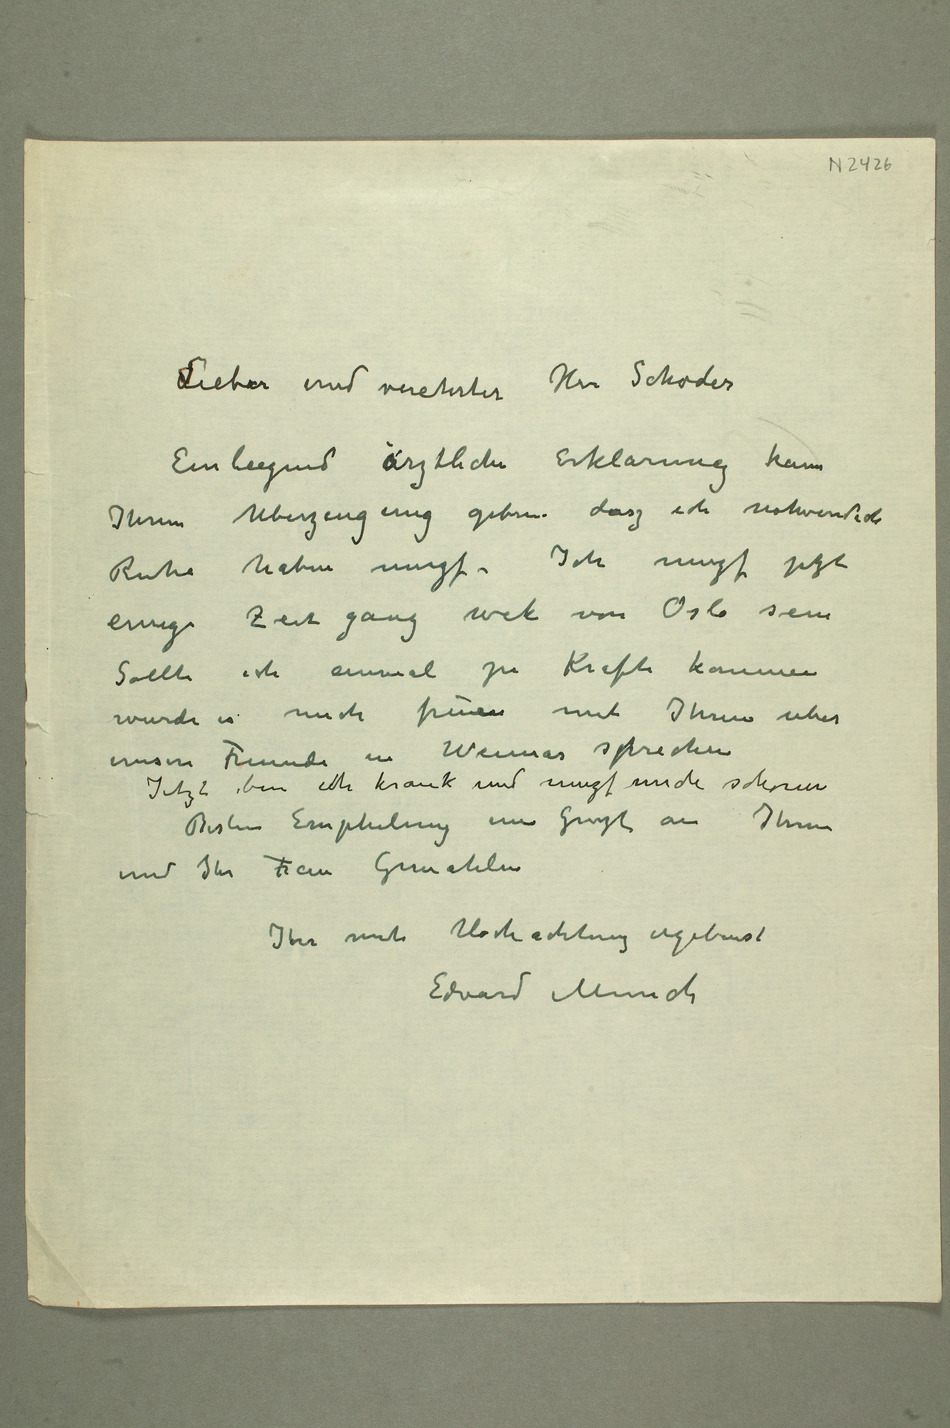 N 2426
Lieber und verehrter Herr Schoder
Einliegend ärztliche Erklärung kann
Ihnen Uberzeugung geben dasz ich notwendich
Ruhe haben muszt. Ich muszt jetzt
einige Zeit ganz wek von Oslo sein
Sollte ich einmal zu Kräfte kommen
wurde es mich freuen mit Ihnen uber
unsere Freunde in Weimar sprechen
Jetzt bin ich krank und muszt mich schonen
Besten Emphelung und Gruszt an Ihnen
und Ihr Frau Gemahlin
Ihr mit Hochachtung ergebenst
Edvard Munch